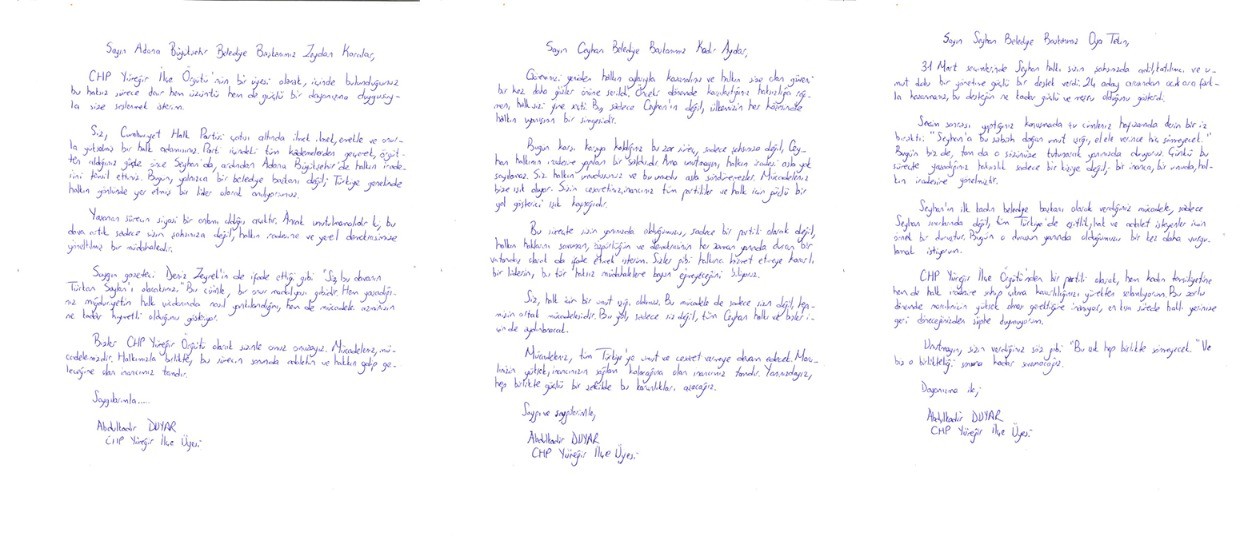 Sayın Adana Büyükşehir Belediye Başkanımız Zeydan Karalar,
CHP Yüreğir İlçe Örgütü'nün bir üyesi olarak, içinde bulunduğunuz
bu haksız sürece dair hem üzüntü hem de güçlü bir dayanışma duygusuy-
la size seslenmek isterim.
Siz, Cumhuriyet Halk Partisi çatısı altında ilmek ilmek, emekle ve onur-
la yükselmiş bir halk adamısınız. Parti içindeki tüm kademelerden geçerek, örgüt-
ten aldığınız güçle önce Seyhan'da, ardından Adana Büyükşehir'de halkın irade-
sini temsil ettiniz. Bugün, yalnızca bir belediye başkanı değil; Türkiye genelinde
halkın gönlünde yer etmiş bir lider olarak anılıyorsunuz.
Yaşanan sürecin siyasi bir anlamı olduğu açıktır. Ancak unutulmamalıdır ki, bu
dava artık sadece sizin şahsınıza değil, halkın iradesine ve yerel demokrasimize
yöneltilmiş bir müdahaledir.
Saygın gazeteci Deniz Zeyrek'in de ifade ettiği gibi "Siz bu davanın
Türkan Saylan'ı olacaksınız." Bu cümle, bir onur madalyası gibidir. Hem yaşadığı-
nız mağduriyetin halk vicdanında nasıl yankılandığını, hem de mücadele azminizin
ne kadar kıymetli olduğunu gösteriyor.
Bizler CHP Yüreğir İlçe Örgütü olarak sizinle omuz omuzayız. Mücadeleniz, mü-
cadelemizdir. Halkımızla birlikte, bu sürecin sonunda adaletin ve hakkın galip ge-
leceğine olan inancımız tamdır.
Saygılarımla.....
Abdulkadir DUYAR
CHP Yüreğir İlçe Üyesi
Sayın Ceyhan Belediye Başkanımız Kadir Aydar,
Görevinizi yeniden halkın oylarıyla kazandınız ve halkın size olan güveni
bu kez daha güçlü gözler önüne serildi. Önceki dönemde karşılaştığınız haksızlığa rağ-
men, halk sizi yine seçti. Bu, sadece Ceyhan'ın değil, ülkemizin her köşesinde
halkın uyanışının bir simgesidir.
Bugün karşı karşıya kaldığınız bu zor süreç, sadece şahsınıza değil, Cey-
han halkının iradesine yapılan bir saldırıdır. Ama unutmayın, halkın iradesi asla yok
sayılamaz. Siz halkın umudusunuz ve bu umudu asla söndüremezler. Mücadeleniz
bize ışık oluyor. Sizin cesaretiniz, inancınız tüm partililer ve halk için güçlü bir
yol gösterici ışık kaynağıdır.
Bu süreçte sizin yanınızda olduğumuzu, sadece bir partili olarak değil,
halkın haklarını savunan, özgürlüğün ve demokrasinin her zaman yanında duran bir
vatandaş olarak da ifade etmek isterim. Sizler gibi halkına hizmet etmeye kararlı
bir liderin, bu tür haksız müdahalelere boyun eğmeyeceğini biliyoruz.
Siz, halk için bir umut ışığı oldunuz. Bu mücadele de sadece sizin değil, hepi-
mizin ortak mücadelesidir. Bu yol, sadece siz değil, tüm Ceyhan halkı ve bizler i-
çin de aydınlanacak.
Mücadeleniz, tüm Türkiye'ye umut ve cesaret vermeye devam edecek. Mora-
linizin yüksek, inancınızın sağlam kalacağına olan inancımız tamdır. Yanınızdayız,
hep birlikte güçlü bir şekilde bu karanlıkları aşacağız.
Saygı ve sevgilerimle,
Abdulkadir DUYAR
CHP Yüreğir İlçe Üyesi
Sayın Seyhan Belediye Başkanımız Oya Tekin,
31 Mart seçimlerinde Seyhan halkı sizin şahsınızda adil, katılımcı ve u-
mut dolu bir yönetime güçlü bir destek verdi. 24 aday arasından açık ara fark-
la kazanmanız, bu desteğin ne kadar güçlü ve meşru olduğunu gösterdi.
Seçim sonrası yaptığınız konuşmada şu cümleniz hepimizde derin bir iz
bıraktı: "Seyhan'a bu sabah doğan umut ışığı, el ele verince hiç sönmeyecek."
Bugün biz de, tam da o sözünüze tutunarak yanınızda duruyoruz. Çünkü bu
süreçte yaşadığınız haksızlık sadece bir kişiye değil; bir inanca, bir umuda, hal-
kın iradesine yönelmiştir.
Seyhan'ın ilk kadın belediye başkanı olarak verdiğiniz mücadele, sadece
Seyhan sınırlarında değil, tüm Türkiye'de eşitlik, hak ve adalet isteyenler için
örnek bir duruştur. Bugün o duruşun yanında olduğumuzu bir kez daha vurgu-
lamak istiyorum.
CHP Yüreğir İlçe Örgütü'nden bir partili olarak, hem kadın temsiliyetine
hem de halk iradesine sahip çıkma kararlılığınızı yürekten selamlıyorum. Bu zorlu
dönemde moralinizin yüksek olması gerektiğine inanıyor, en kısa sürede halkın yanına
geri döneceğinizden şüphe duymuyorum.
Unutmayın, sizin verdiğiniz söz gibi: "Bu ışık hep birlikte sönmeyecek." Ve
biz o birlikteliği sonuna kadar savunacağız.
Dayanışma ile,
Abdulkadir DUYAR
CHP Yüreğir İlçe Üyesi